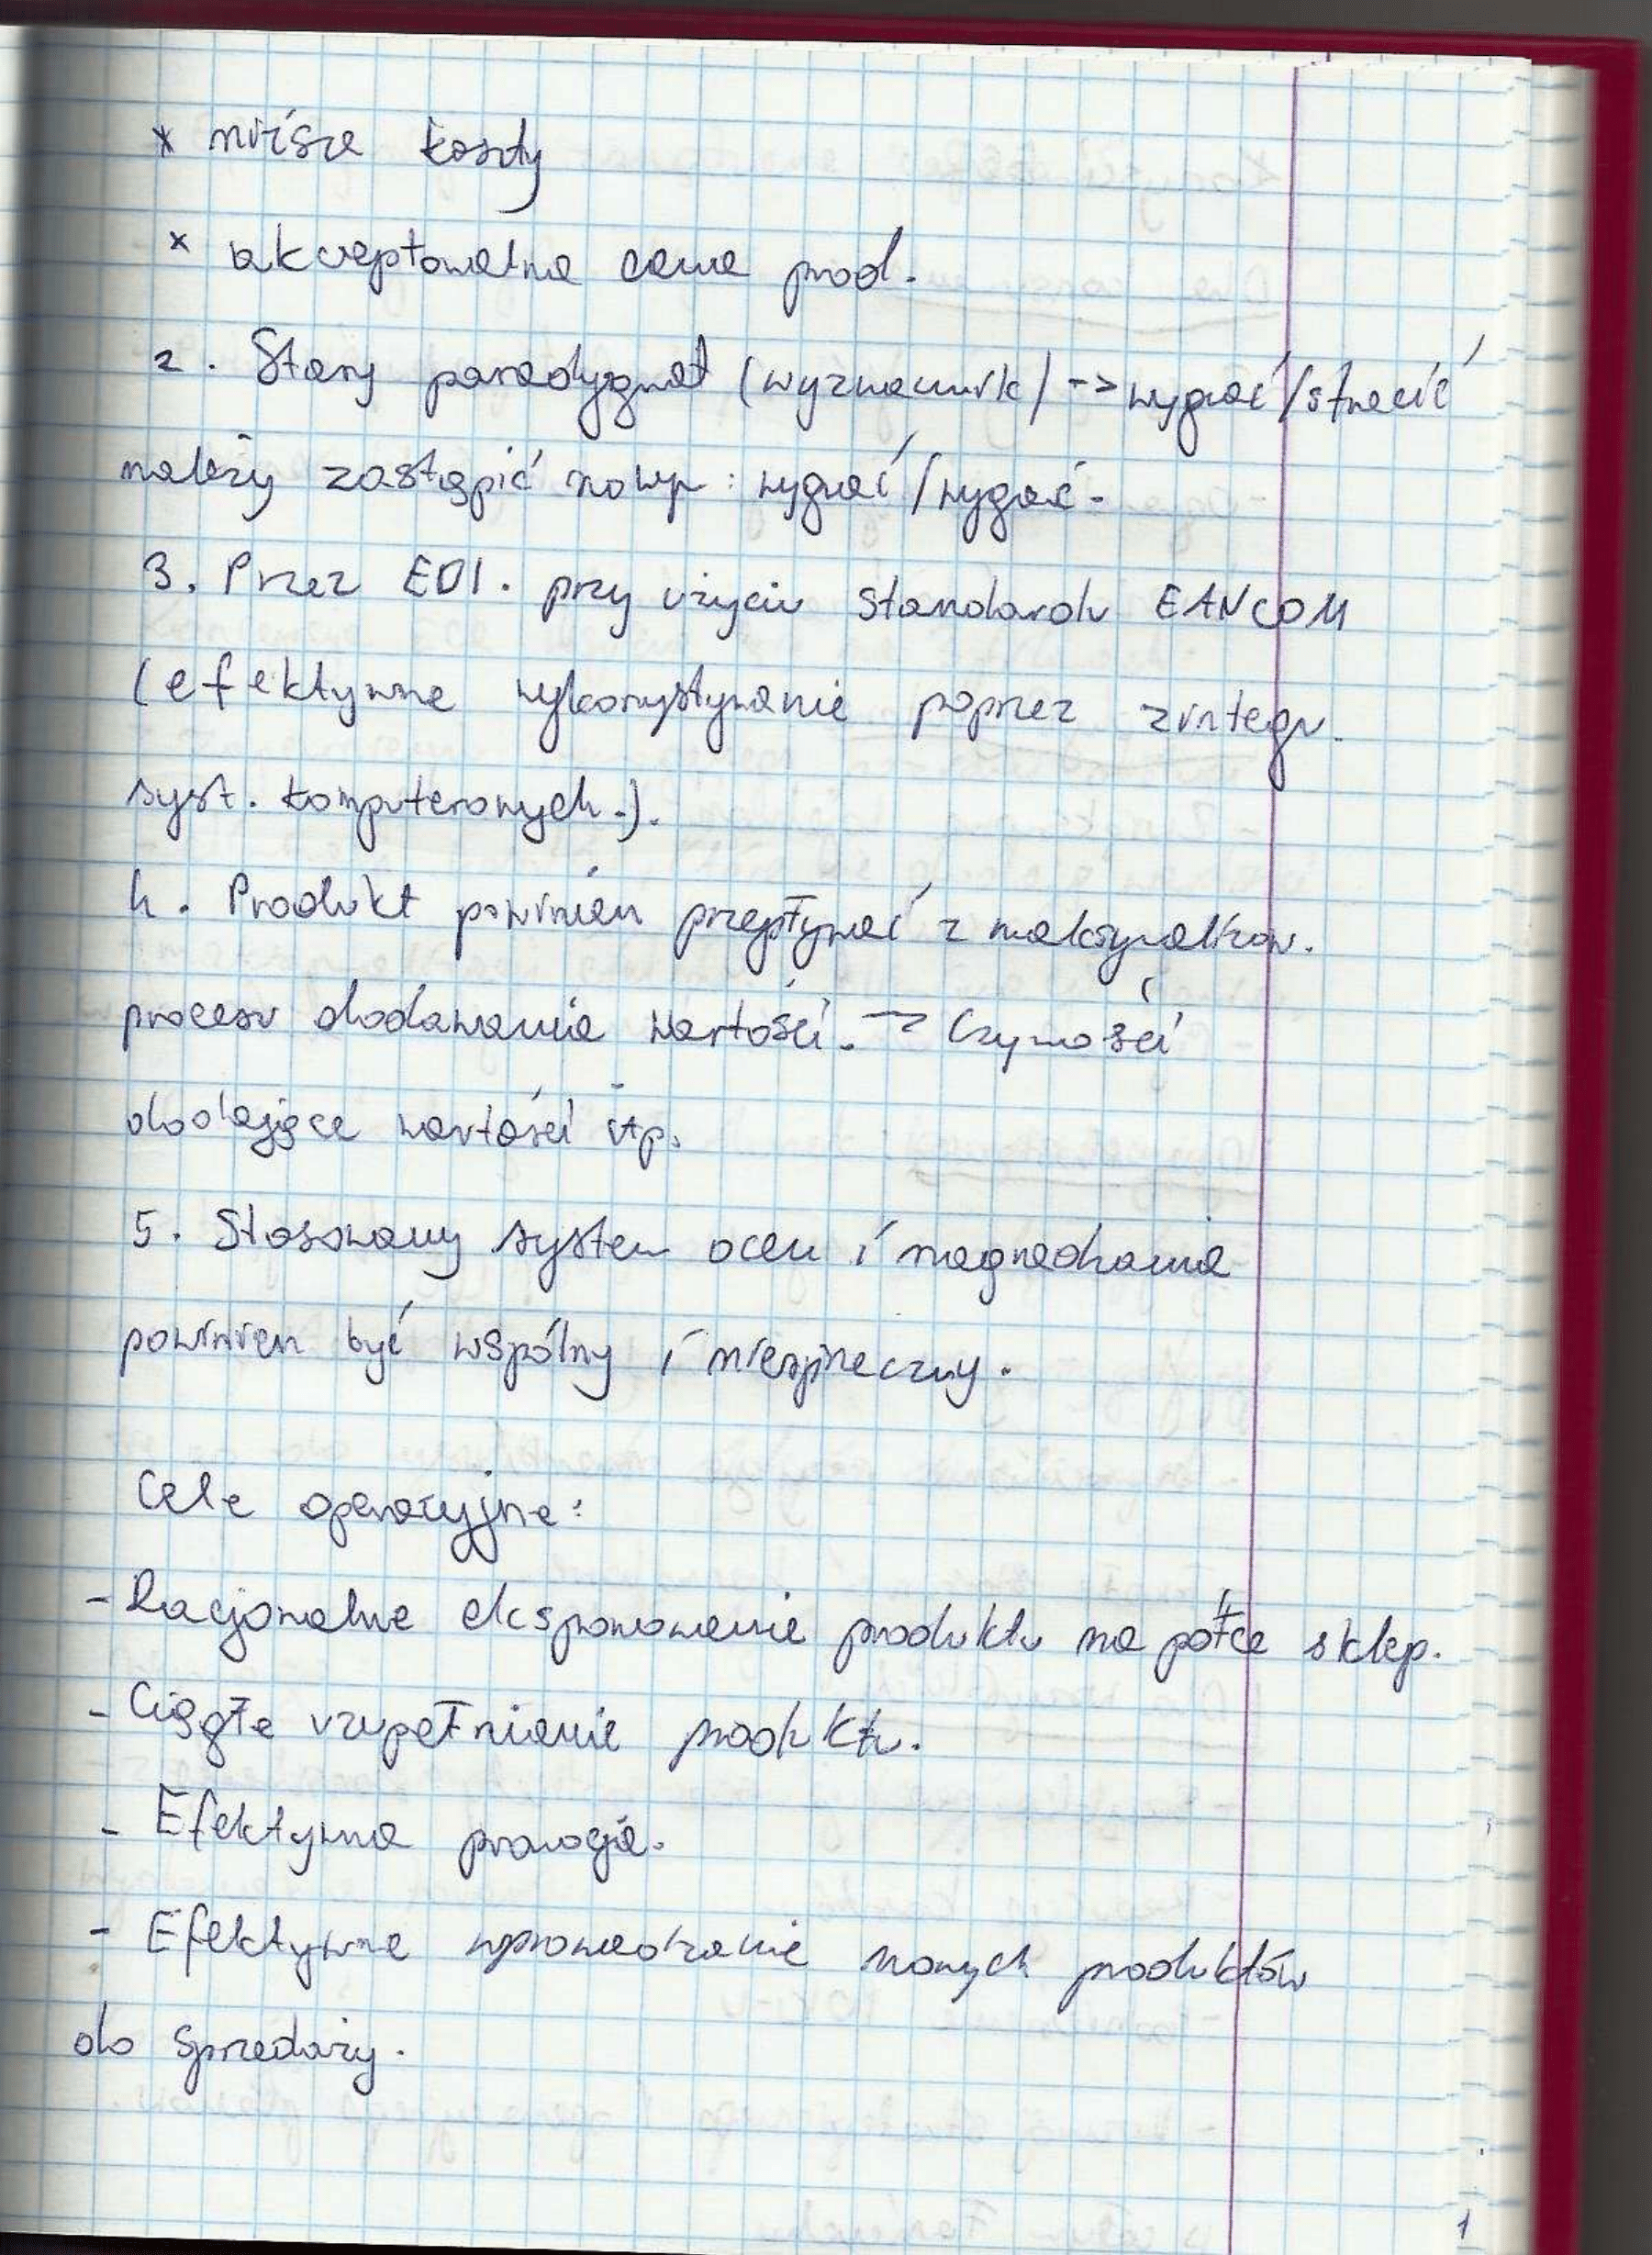 * niższe koszty
* akceptowalna cena prod.
2. Stary paradygmat (wyznacznik) -> wygrać/stracić
należy zastąpić nowym: wygrać/wygrać.
3. Przez EDI. przy użyciu standardu EANCOM
(efektywne wykorzystywanie poprzez zintegr.
syst. komputerowych.).
4. Produkt powinien przepływać z maksymalizow.
procesu dodawania wartości. -> Czynności
dodające wartości itp.
5. Stosowany system ocen i nagradzania
powinien być wspólny i niesprzeczny.
Cele operacyjne:
- Racjonalne eksponowanie produktu na półce sklep.
- Ciągłe uzupełnienie produktu.
- Efektywna promocja.
- Efektywne wprowadzanie nowych produktów
do sprzedaży.
1